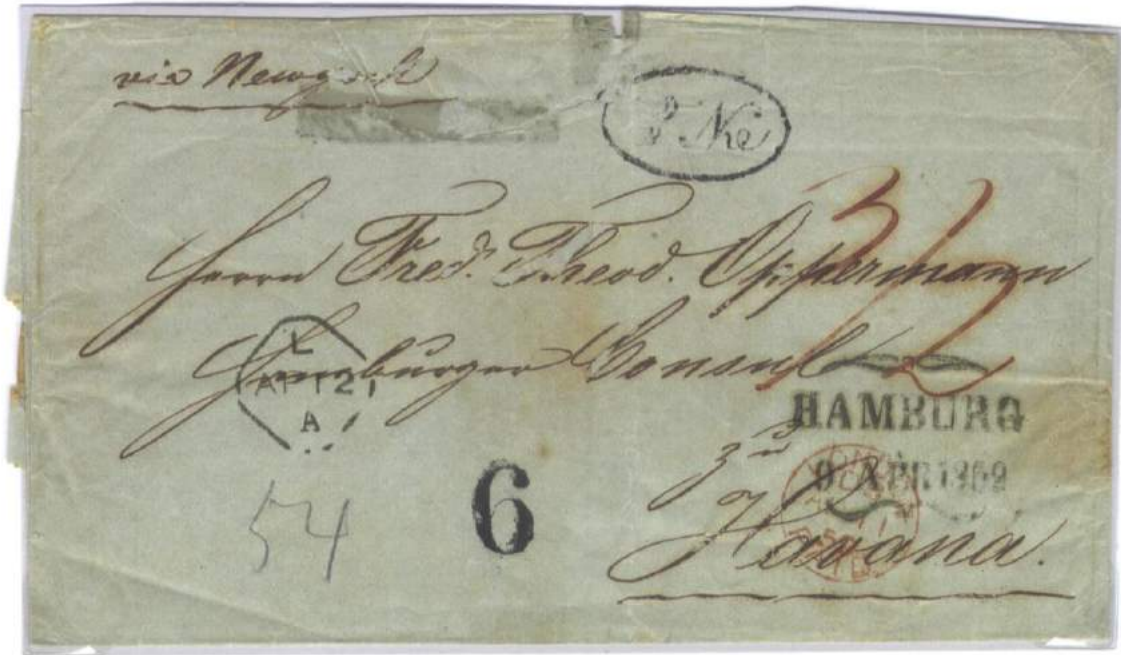 via Newyork
Herrn Fred. Theod. Oppermann
Hamburger Consul
HAMBURG
9 APR 1859
L
AP 12
A
zu
Havana.
54
6